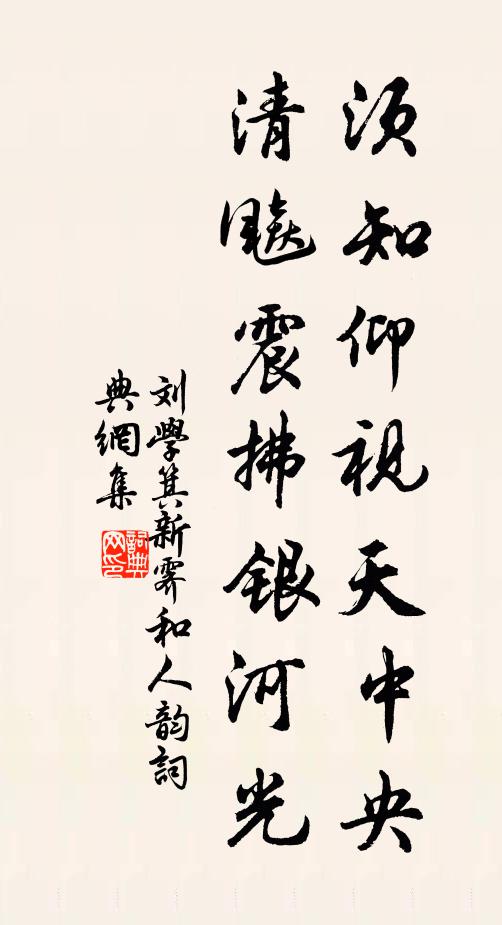 须知仰视天中央
清飚震拂银河光
刘學箕新霁和人韵詞
典網集
詞典网印